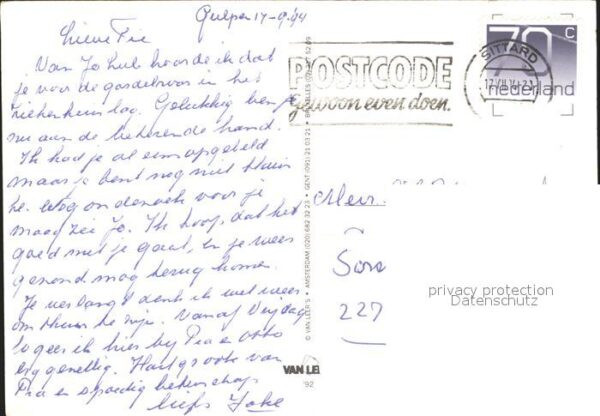 Gulpen 17-9-'94
Lieve Fie
Van Jo Hub hoorde ik dat
je voor de gordelroos in het
ziekenhuis lag. Gelukkig ben je
nu aan de beterende hand.
Ik had je al eens opgebeld
maar je bent nog niet thuis
he. Nog onderzoek voor je
maag zei Jo. Ik hoop dat het
goed met je gaat, en je weer
gezond mag terug komen.
Je verlangt denk ik wel weer
om thuis te zijn. Vanaf Vrijdag
logeer ik hier bij Pia en Otto
erg gezellig. Hartgroete van
Pia en spoedig beterschap
liefs Joke
POSTCODE
gewoon even doen.
SITTARD
70 c
nederland
Mevr.
227
© VAN LEER'S • AMSTERDAM (020) 682 32 23 • GENT
VAN LEE
'92
privacy protection
Datenschutz